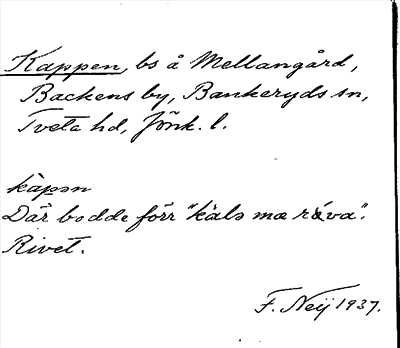 Kappen, bs å Mellangård,
Backens by, Bankeryds sn,
Tveta hd, Jönk. l.
kàpən
Där bodde förr "käls mæ räva".
Rivet.
F. Neij 1937.